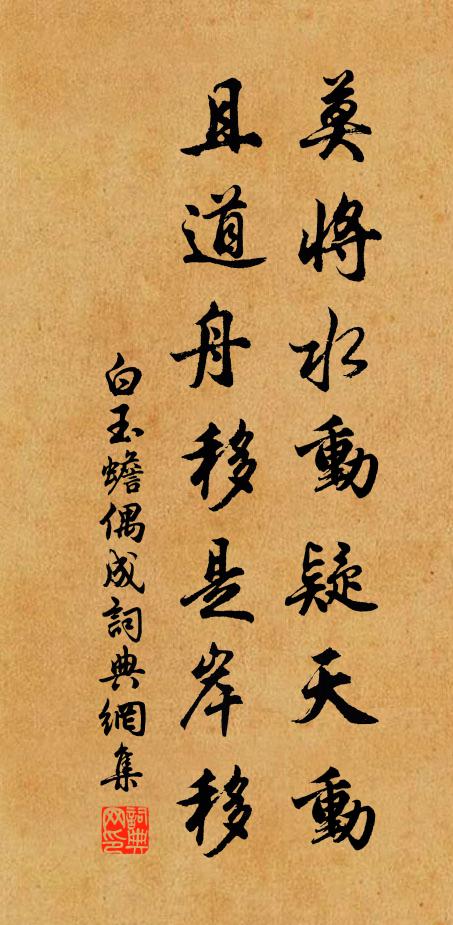 莫將水動疑天動
且道舟移是岸移
白玉蟾偶成詞典網集
詞典网印